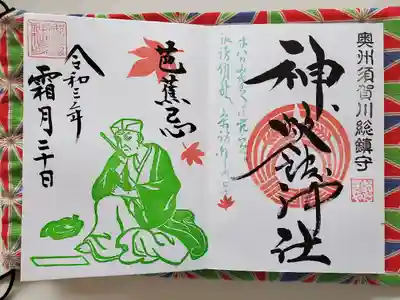 奥州須賀川総鎮守
神炊館神社
芭蕉忌
令和三年
霜月二十日